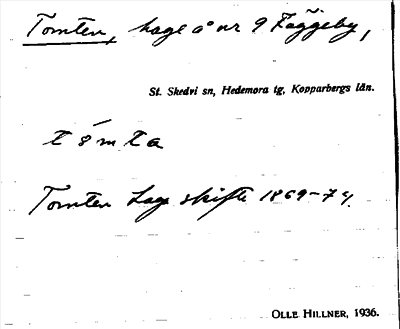 Tomten, hage å nr 9 Faggeby,
St. Skedvi sn, Hedemora tg, Kopparbergs län.
Tomten Laga skifte 1869-74.
OLLE HILLNER, 1936.